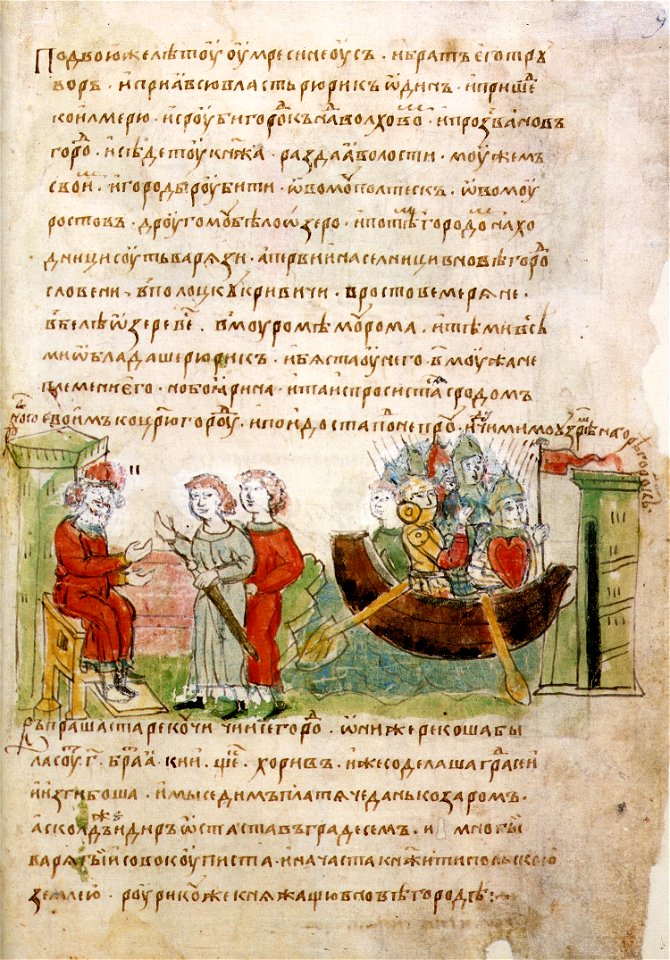 По двою же лѣтоу оумре синеоусъ · и братъ его троу
воръ · и приꙗ всю власть рюрикъ ѡдинъ · и пришє
ко илмерю · и сроуби городⷪ҇къ надъ волховомъ · и прозва новъ
горⷪ҇ · и сѣде тоу кнѧжа · раздаѧ волости · моужемъ
своиⷨ · и городы роубити · ѡвомоⷹ полтескъ · ѡвомоу
ростовъ · дроугомоⷹ бѣлоѡзеро · и по тѣⷨ городоⷨ нахо
дници соуть варѧзи · а первии населници в новѣгорⷪ҇
словени · в полоцкꙋ кривичи · в ростове мерѧне ·
в белеѡзере веⷭ҇ · в моуроме моⷹрома · и тѣми всѣ
ми ѡбладаше рюрикъ · и бѧста оу него · в҃ моужа не
племени его · но боꙗрина · и та испросистасѧ с родом
своимъ ко црⷭ҇югородоⷹ · и поидоста по непрⷪ҇ · идоучи мимо оузрѣста на горѣ городокъ
въпрашаста рекоучи чии се горⷪ҇ · ѡни же рекоша бы
ла соуⷮ · г҃ · братⷶꙗ · кии · щекъ · хоривъ · иже соделаша градъ сеи
и изгибоша · и мы седимъ платѧче дань козаромъ ·
асколдъ же и диръ ѡстаста въ граде сем · и многы
варѧгы совокоуписта · и начаста кнѧжити польскою
землею · роурикоу же кнѧжащю в новѣгородѣ :